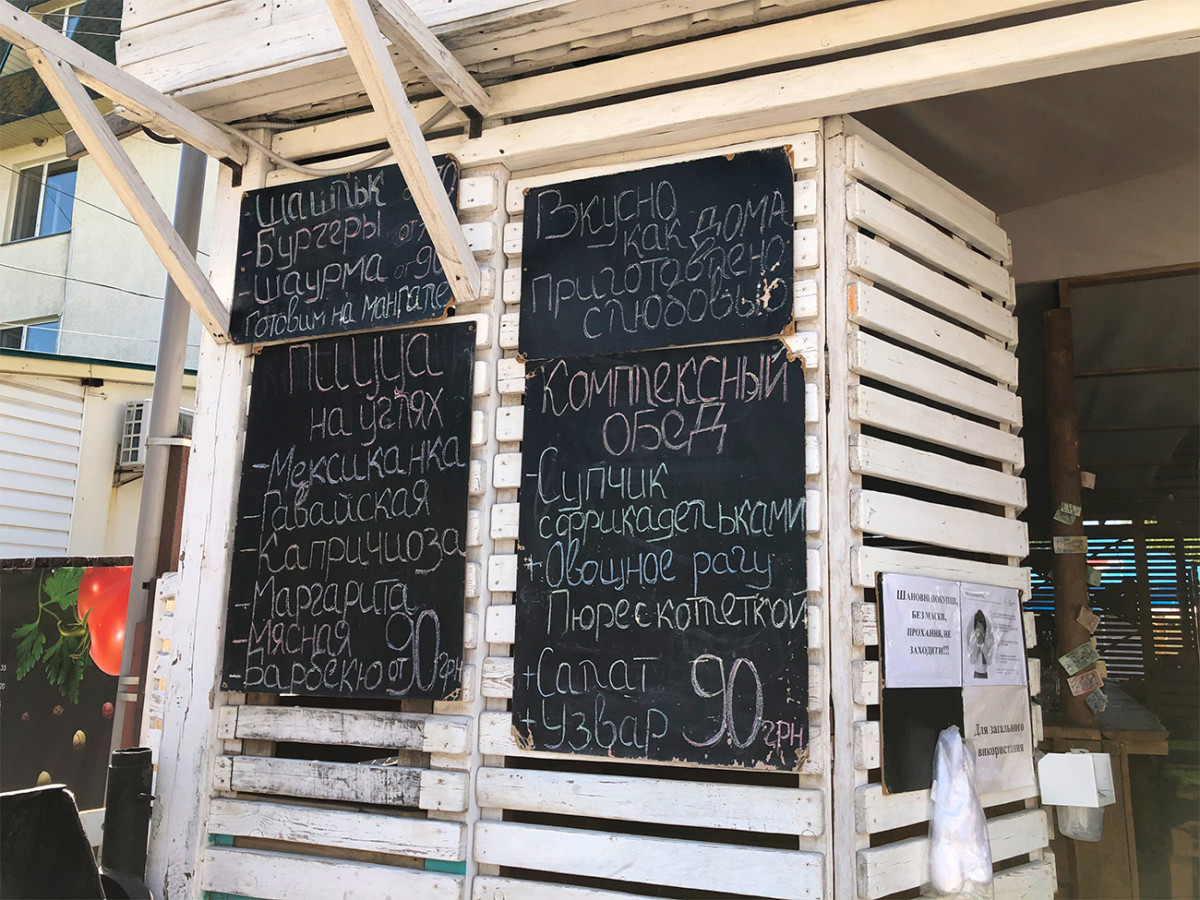 -Шашлык от
-Бургеры от
-шаурма от 90
Готовим на мангале
Пицца
на углях
-Мексиканка
-Гавайская
-Капричиоза
-Маргарита
-Мясная
Барбекю от 90 грн
Вкусно
как дома
Приготовлено
с любовью
Комплексный
обед
-Супчик
с фрикадельками
+Овощное рагу
Пюре с котлеткой
+Салат
+Узвар 90 грн
Шановні покупці,
без маски,
прохання, не
заходити!!!
Для загального
використання